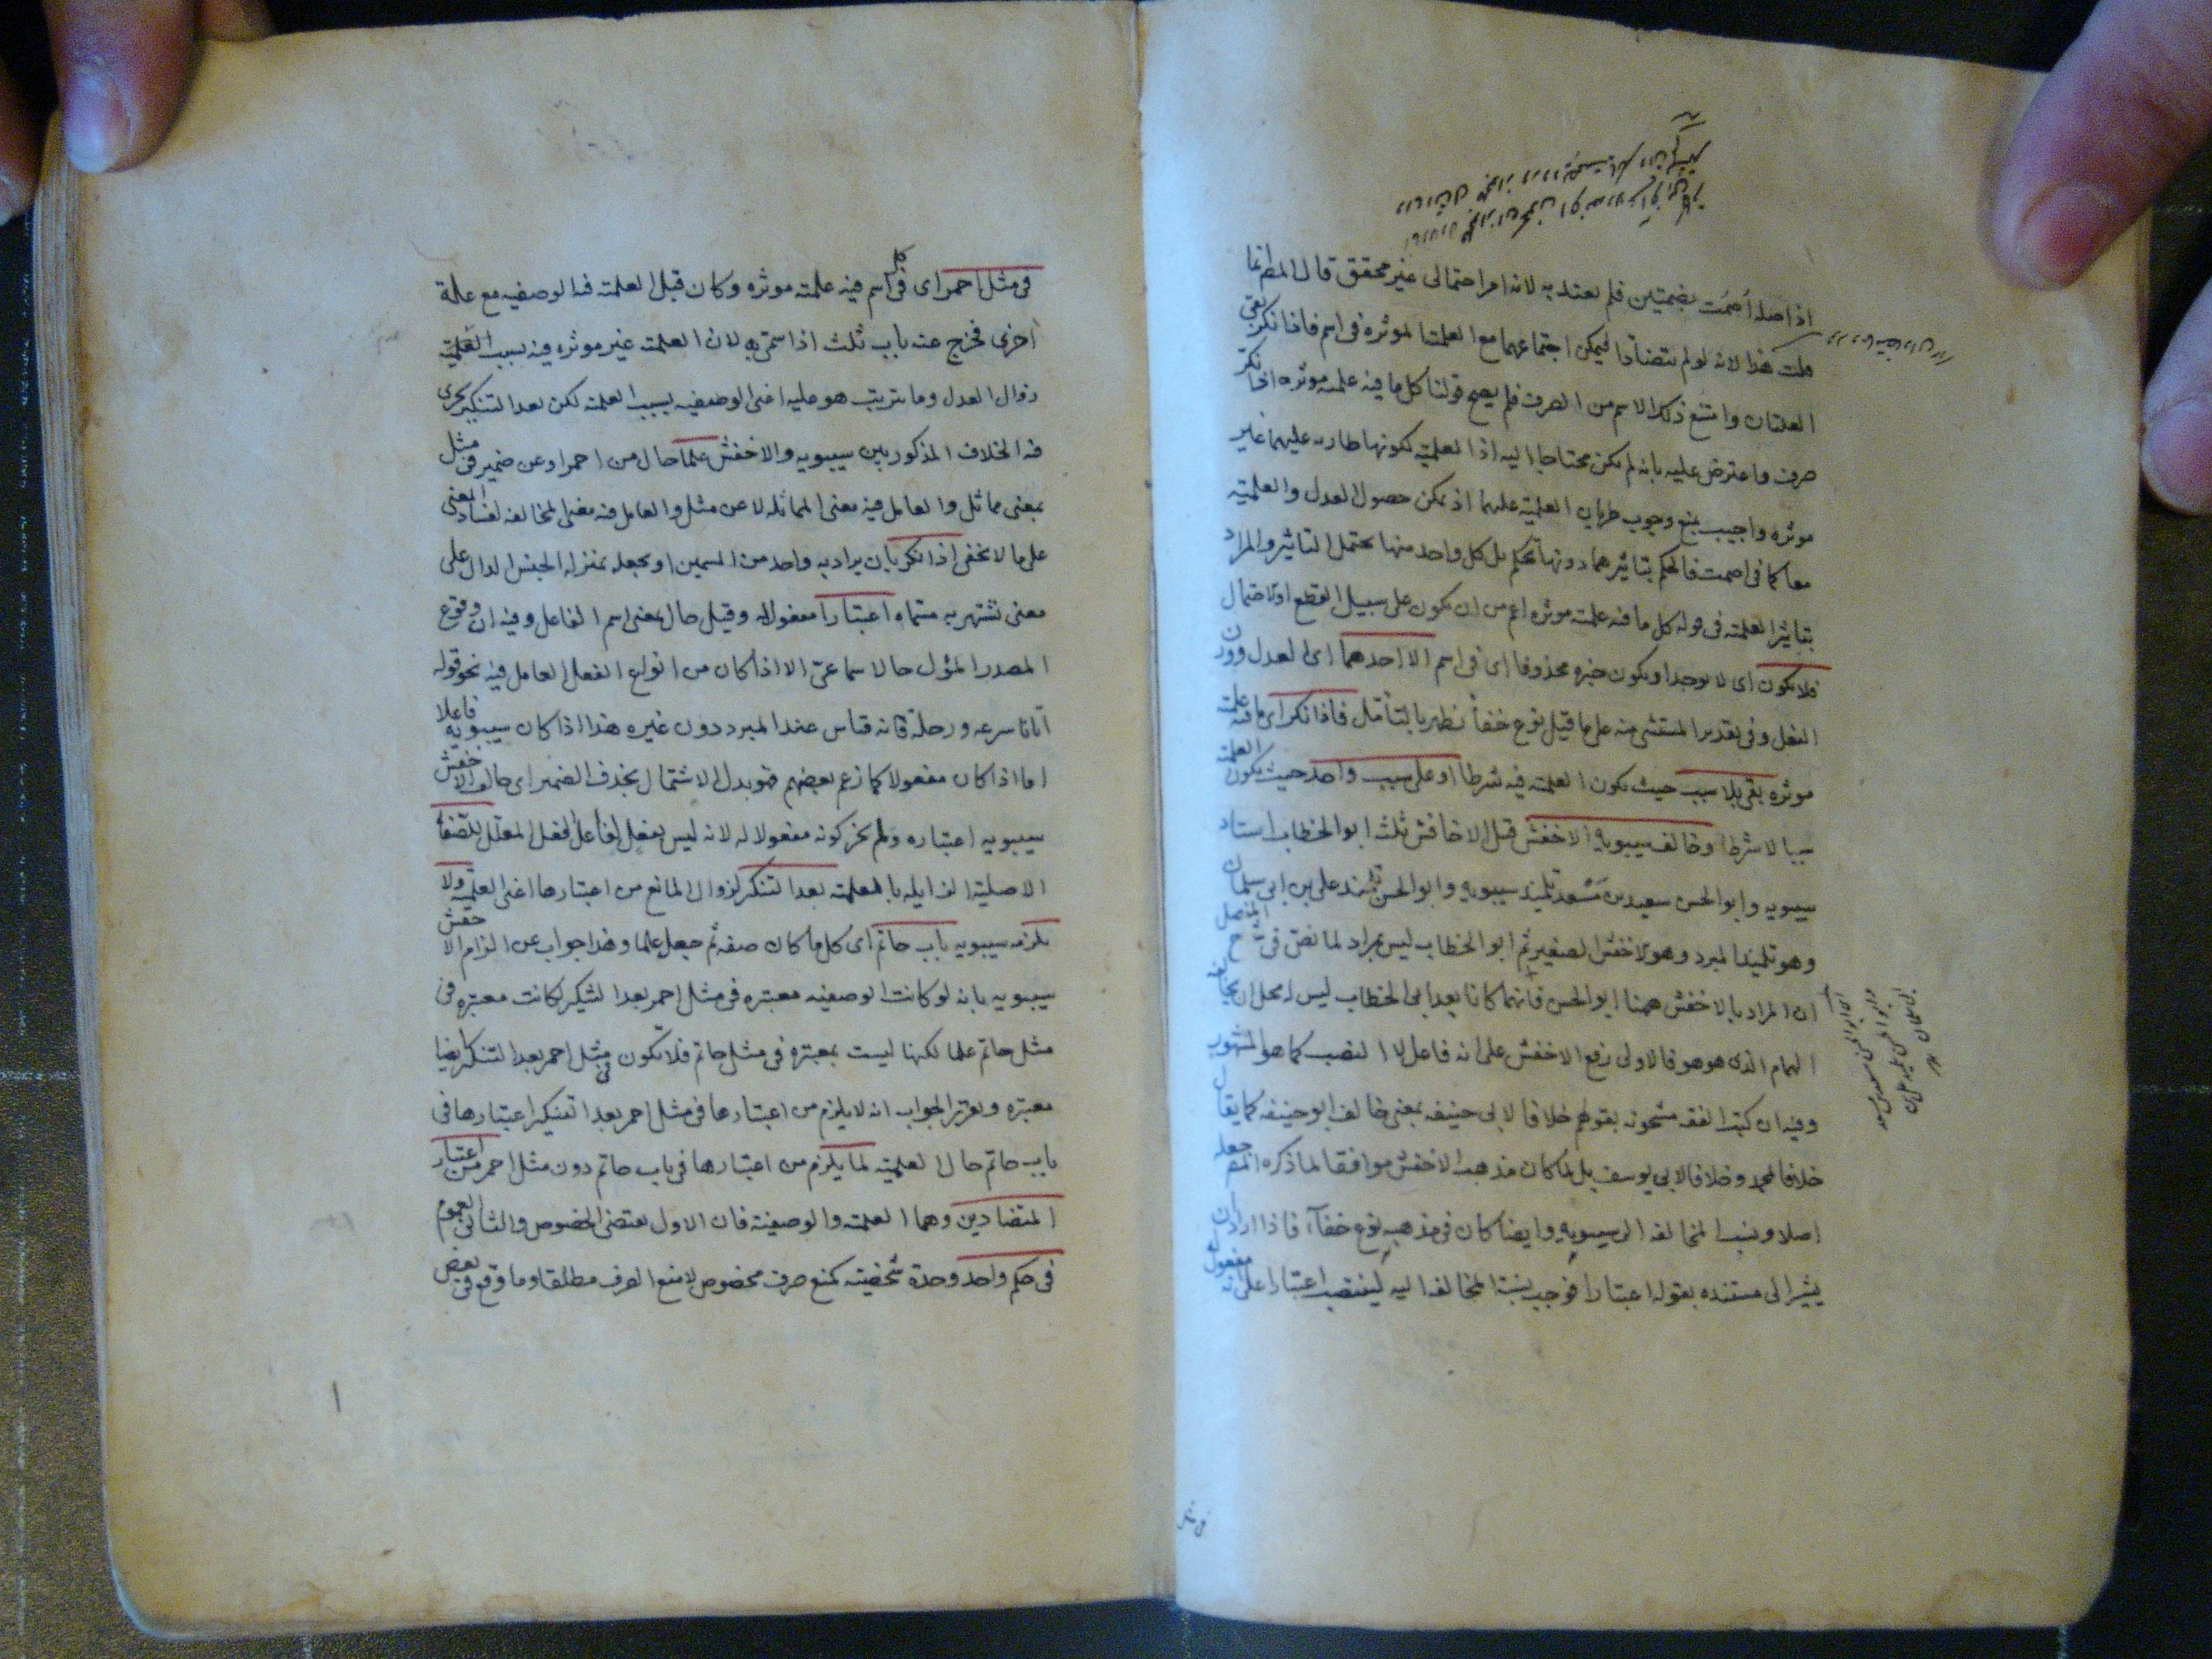 اذا صله اُصمُت بضمتين فلم يعتد به لانه امر احتمالى غير محقق قال المط انما
قلت هذا لانه لو لم يتضادا ليمكن اجتماعهما مع العلميته الموثره فى اسم فاذا نكر بقى
العلتان وامتنع ذلك الاسم من الصرف فلم يصح قولنا كل ما فيه علميه موثره اذا نكر
صرف واعترض عليه بانه لم يكن محتاجا اليه اذا العلميه لكونها طاريه عليهما غير
موثره واجيب بمنع وجوب طريان العلميه عليهما اذ يمكن حصول العدل والعلميه
معا كما فى اصمت فالحكم بتاثيرهما دونها تحكم بل كل واحد منها يحتمل التاثير والمراد
بتاثير العلميه فى قوله كل ما فيه علميه موثره اعم من ان يكون على سبيل القطع او الاحتمال
فلا يكون اى لا يوجد او يكون خبره محذوفا اى فى اسم الا احدهما اى العدل ووزن
الفعل وفى تقدير المستثنى منه على ما قيل نوع خفأ يظهر بالتأمل فاذا نكر اى ما فيه علميه
موثره بقى بلا سبب حيث يكون العلميه فيه شرطا او على سبب واحد حيث يكون العلميه
سببا لا شرطا وخالف سيبويه الاخفش قيل الاخافش ثلث ابو الخطاب استاد
سيبويه وابو الحسن سعيد بن مَسْعد تلميذ سيبويه وابو الحسن على بن ابى سليمان
وهو تلميذ المبرد وهو الاخفش الصغير ثم ابو الخطاب ليس بمراد لما نص فى شرح المفصل
ان المراد بالاخفش ههنا ابو الحسن فانهما كانا بعد ابى الخطاب ليس لمحل ان يخالف
الهمام الذى هو هو فالاولى رفع الاخفش على انه فاعل لا النصب كما هو المشهور
وفيه ان كتب الفقه مشحونه بقولهم خلافا لابى حنيفه بمعنى خالف ابو حنيفه كما يقال
خلافا لمحمد وخلافا لابى يوسف بل لما كان مذهب الاخفش موافقا لما ذكره المص جعله
اصلا ونسب المخالفه الى سيبويه وايضا كان فى مذهبه نوع خفآء فاذا اراد ان
يشير الى مستنده بقوله اعتبارا فوجب نسبة المخالفه اليه لينتصب اعتبارا على انه مفعول له
فى مثل
فى مثل احمر اى فى كل اسم فيه علميه موثره وكان قبل العلميه فيه الوصفيه مع علة
اخرى فخرج عنه باب ثلث اذا سمى به لان العلميه غير موثره فيه لسبب العَلميّه
زوال العدل وما يترتب هو عليه اعنى الوصفيه بسبب العلميه لكن بعد التنكير يجرى
فيه الخلاف المذكور بين سيبويه والاخفش علما حال من احمر او عن ضمير فى مثل
بمعنى مماثل والعامل فيه معنى المماثله لا عن مثل والعامل فيه معنى المخالفه لفساد المعنى
على ما لا يخفى اذا نكر بان يراد به واحد من المسمين او يجعله بمنزله الجنس الدال على
معنى تشتهر به مسماه اعتبارا مفعول له وقيل حال بمعنى اسم الفاعل وفيه ان وقوع
المصدر المؤل حالا سماعىّ الا اذا كان من انواع الفعل العامل فيه نحو قوله
اتانا سرعه ورحلة فانه قياس عند المبرد دون غيره هذا اذا كان سيبويه فاعلا
اما اذا كان مفعولا كما زعم بعضهم فهو بدل الاشتمال بحذف الضمير اى خالف الاخفش
سيبويه اعتباره ولم يجز كونه مفعولا له لانه ليس بفعل لفاعل الفعل المعلل للصّفة
الاصلية الزايله بالعلميه بعد التنكير لزوال المانع من اعتبارها اعنى العلميّه ولا
يلزم سيبويه باب حاتم اى كل ما كان صفه ثم جعل علما وهذا جواب عن الزام الاخفش
سيبويه بانه لو كانت الوصفيه معتبره فى مثل احمر بعد التنكير لكانت معتبره فى
مثل حاتم علما لكنها ليست بمعتبره فى مثل حاتم فلا تكون فى مثل احمر بعد التنكير ايضا
معتبره وتقرير الجواب انه لا يلزم من اعتبارها فى مثل احمر بعد التنكير اعتبارها فى
باب حاتم حال العلميه لما يلزم من اعتبارها فى باب حاتم دون مثل احمر من اعتبار
المتضادين وهما العلميه والوصفيته فان الاول يقتضى الخصوص والثانى العموم
فى حكم واحد وحدة شخصيته كمنع صرف مخصوص لا منع الصرف مطلقا وما وقع فى بعض